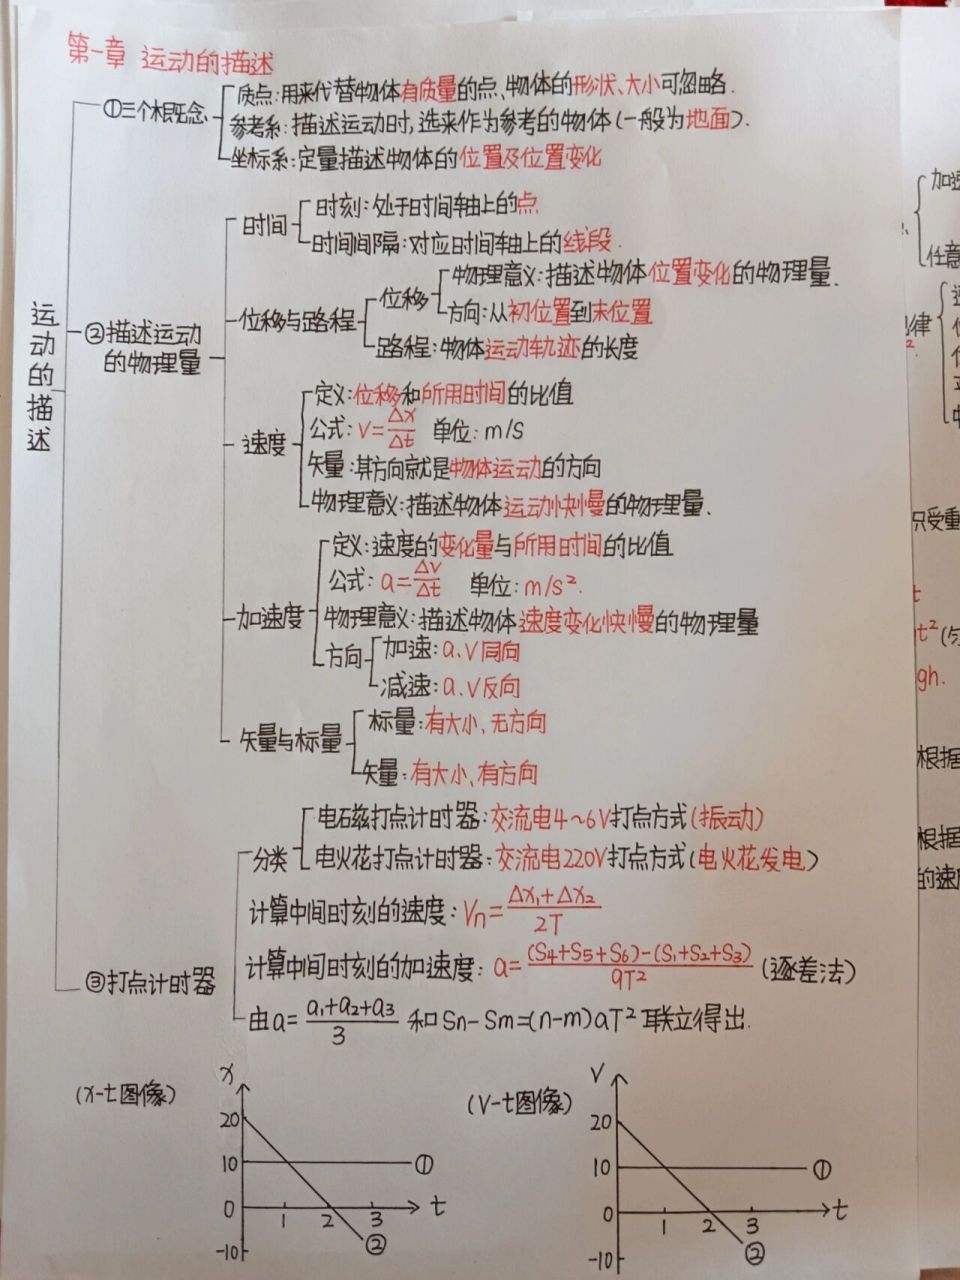 第一章 运动的描述
运动的描述
①三个概念
质点:用来代替物体有质量的点、物体的形状、大小可忽略.
参考系:描述运动时,选来作为参考的物体(一般为地面).
坐标系:定量描述物体的位置及位置变化
②描述运动的物理量
时间
时刻:处于时间轴上的点
时间间隔:对应时间轴上的线段.
位移与路程
位移
物理意义:描述物体位置变化的物理量.
方向:从初位置到末位置
路程:物体运动轨迹的长度
速度
定义:位移和所用时间的比值
公式:v=Δx/Δt 单位:m/s
矢量:其方向就是物体运动的方向
物理意义:描述物体运动快慢的物理量、
加速度
定义:速度的变化量与所用时间的比值
公式:a=Δv/Δt 单位:m/s².
物理意义:描述物体速度变化快慢的物理量
方向
加速:a、v同向
减速:a、v反向
矢量与标量
标量:有大小、无方向
矢量:有大小、有方向
③打点计时器
分类
电磁打点计时器:交流电4~6V打点方式(振动)
电火花打点计时器:交流电220V打点方式(电火花发电)
计算中间时刻的速度:Vn=(Δx₁+Δx₂)/2T
计算中间时刻的加速度:a=((S₄+S₅+S₆)-(S₁+S₂+S₃))/9T² (逐差法)
由a=(a₁+a₂+a₃)/3 和Sn-Sm=(n-m)aT²联立得出.
(x-t图像)
x
20
10
0
-10
1 2 3
t
①
②
(v-t图像)
v
20
10
0
-10
1 2 3
t
①
②
任意
只受重
t
gh.
根据
根据
的速度